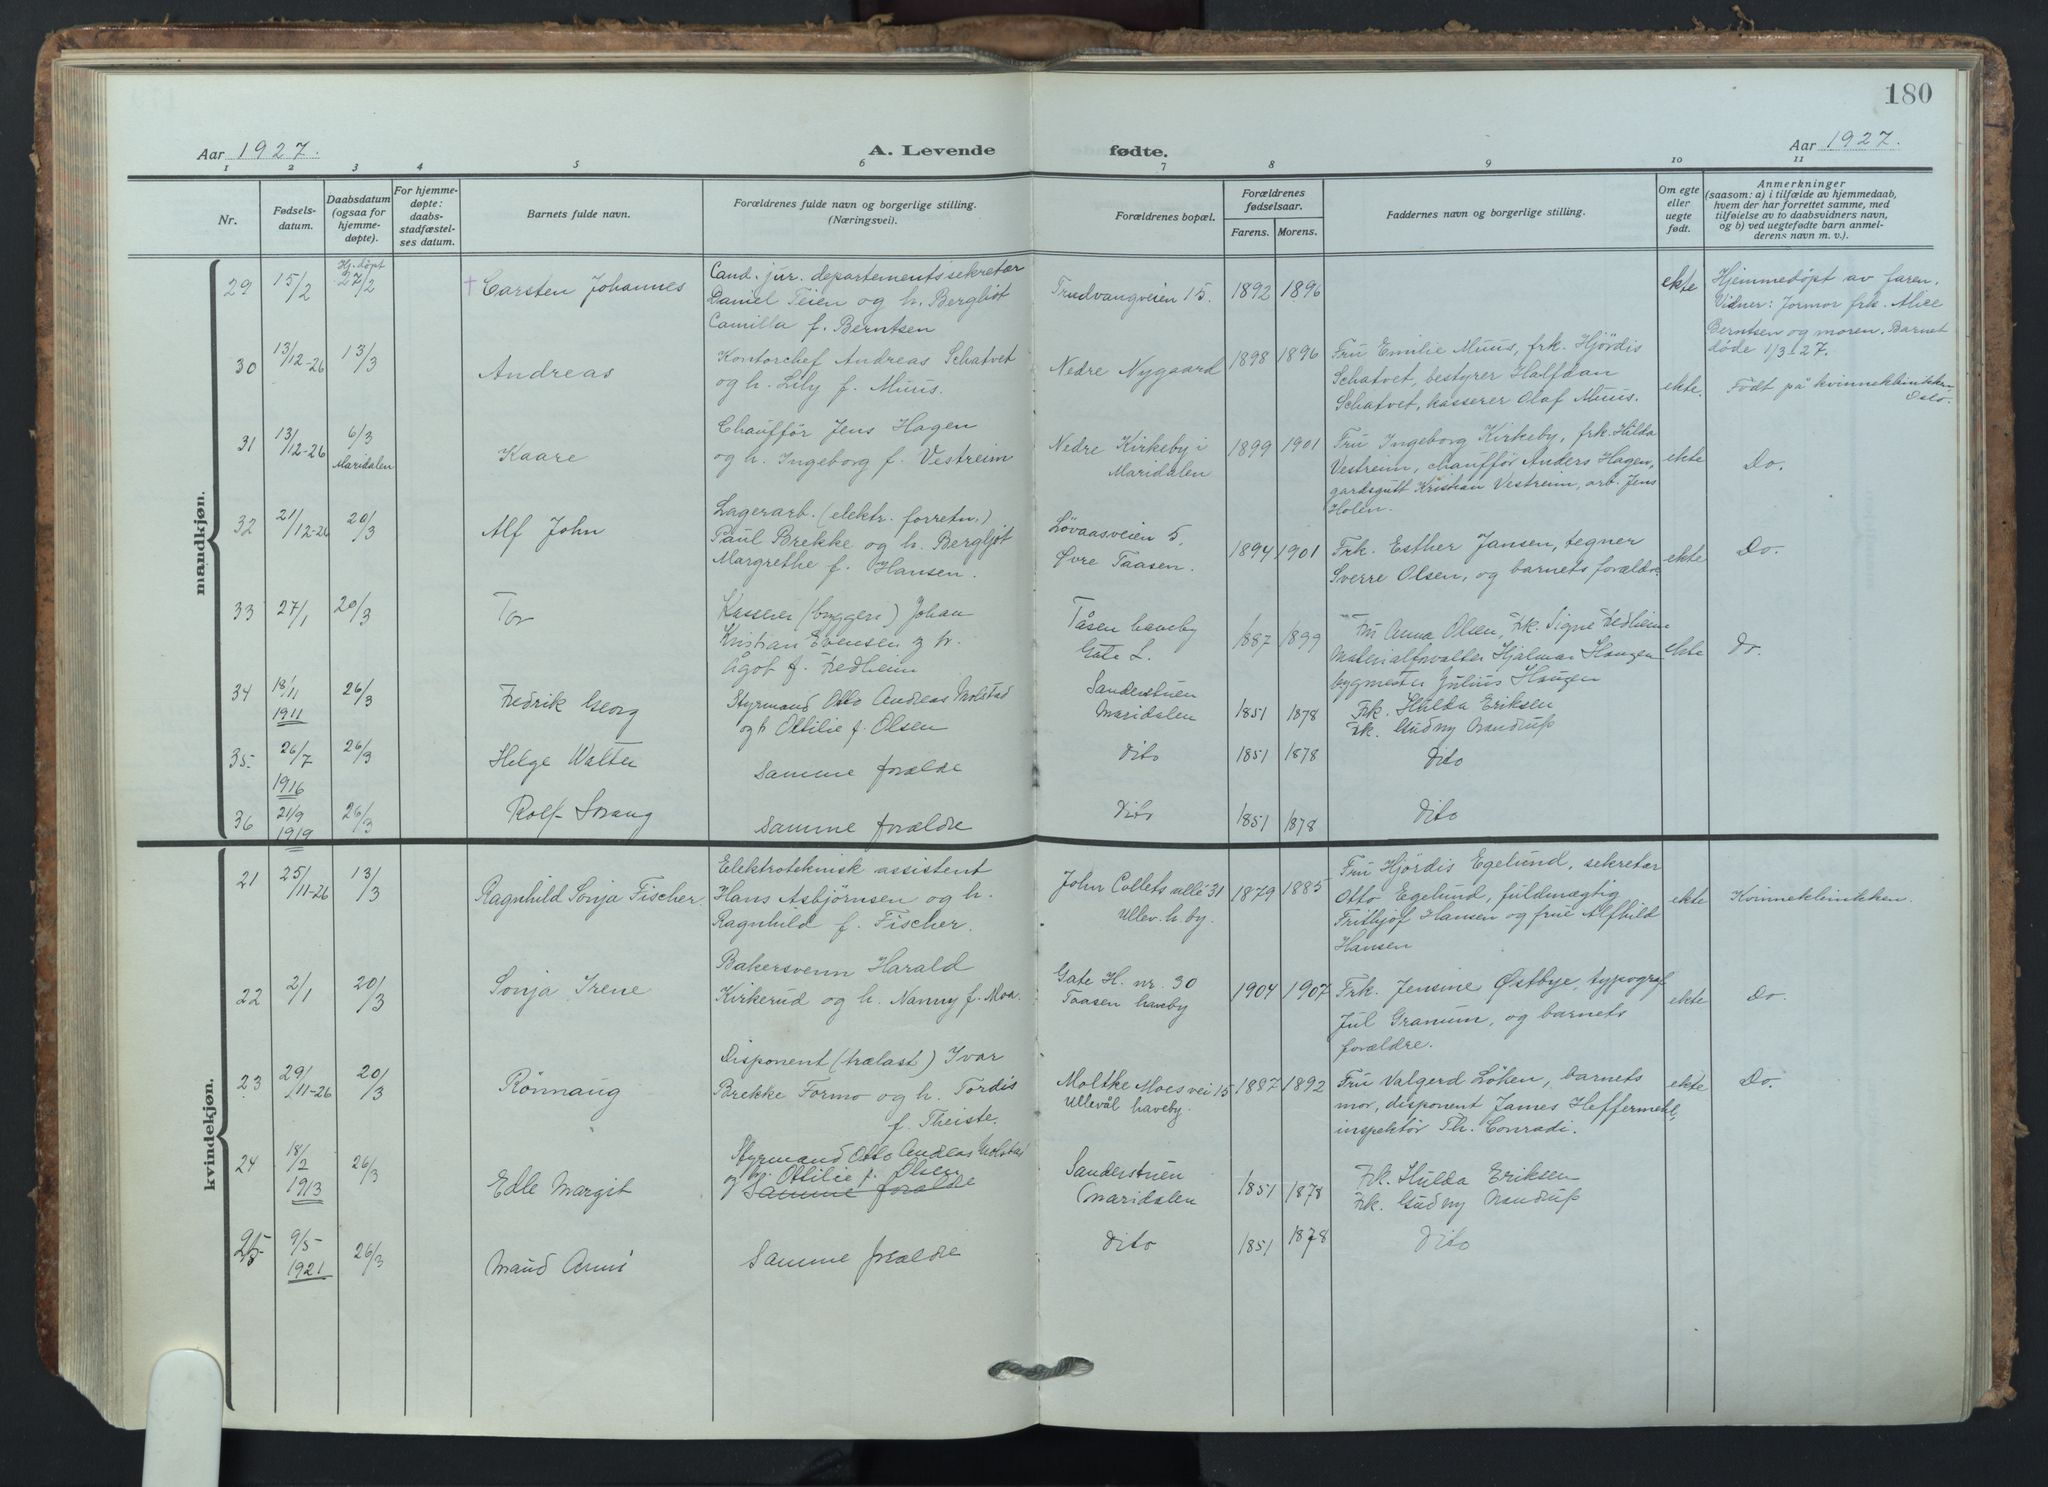 180
Aar 1927.
A. Levende
fødte.
Aar 1927.
1 2 3 4 5 6 7 8 9 10 11
Nr.
Fødsels-
datum.
Daabsdatum
(ogsaa for
hjemme-
døpte).
For hjemme-
døpte:
daabs-
stadfæstel-
ses datum.
Barnets fulde navn.
Forældrenes fulde navn og borgerlige stilling.
(Næringsvei).
Forældrenes bopæl.
Forældrenes
fødselsaar.
Farens. Morens.
Faddernes navn og borgerlige stilling.
Om egte
eller
uegte
født.
Anmerkninger
(saasom: a) i tilfælde av hjemmedaab,
hvem der har forrettet samme, med
tilføielse av to daabsvidners navn,
og b) ved uegtefødte barn anmel-
derens navn m. v.).
mandkjøn.
29
15/2
Hj. døpt
27/2
† Carsten Johannes
Cand. jur. departementssekretær
Daniel Teien og h. Bergljot
Camilla f. Berntsen
Trudvangveien 15.
1892 1896
ekte
Hjemmedøpt av faren.
Vidner: Jormor frk. Alice
Berntsen og moren. Barnet
døde 1/3-27.
30
13/12-26
13/3
Andreas
Kontorchef Andreas Schatvet
og h. Lily f. Muus.
Nedre Nygaard
1898 1896
Fru Emilie Muus, frk. Hjördis
Schatvet, bestyrer Halfdan
Schatvet, kasserer Olaf Muus.
ekte.
Født på kvinneklinikken,
Oslo.
31
13/12-26
6/3
Maridalen
Kaare
Chauffør Jens Hagen
og h. Ingeborg f. Vestreim
Nedre Kirkeby i
Maridalen
1899 1901
Fru Ingeborg Kirkeby, frk. Hilda
Vestreim, chauffør Anders Hagen,
gardsgutt Kristian Vestreim, arb. Jens
Holen.
ekte
Do.
32
21/12-26
20/3
Alf John
Lagerarb. (elektr. forretn.)
Paul Brekke og h. Bergljot
Margrethe f. Hansen.
Løvaasveien 5.
Øvre Taasen.
1894 1901
Frk. Esther Jansen, tegner
Sverre Olsen, og barnets forældre.
ekte
Do.
33
27/1
20/3
Tor
Kasserer (bryggeri) Johan
Kristian Evensen og h.
Ågot f. Fredheim
Tåsen haveby
Gate L.
1887 1899
Fru Anna Olsen, Frk. Signe Fredheim
Materialforvalter Hjalmar Haugen
bygmester Julius Haugen
ekte
Do.
34
18/11
1911
26/3
Fredrik Georg
Styrmand Otto Andreas Molstad
og h Ottilie f. Olsen
Sanderstuen
Maridalen
1851 1878
Frk. Hulda Eriksen
Frk. Gudny Brandrup
35
26/7
1916
26/3
Helge Walter
Samme forældre
Dito
1851 1878
Dito
36
21/9
1919
26/3
Rolf
Samme forældre
Dito
1851 1878
Dito
kvindekjøn.
21
25/11-26
13/3
Ragnhild Sonja Fischer.
Elektroteknisk assistent
Hans Asbjörnsen og h.
Ragnhild f. Fischer.
John Collets allé 31
Ullev. h. by.
1879 1885
Fru Hjördis Egelund, sekretær
Otto Egelund, fuldmægtig
Fritbjof Hansen og frue Alfhild
Hansen
ekte
Kvinneklinikken.
22
2/1
20/3
Sonja Irene
Bakersvenn Harald
Kirkerud og h. Nanny f. Moa.
Gate H. nr. 30
Taasen haveby
1904 1907
Frk. Jensine Østbye, typograf
Jul Granum, og barnets
forældre.
ekte
Do.
23
29/11-26
20/3
Rönnaug
Disponent (trælast) Ivar
Brekke Formo og h. Tordis
f. Theiste.
Moltke Moes vei 15
Ullevål haveby.
1887 1892
Fru Valgerd Løken, barnets
mor, disponent James Heffermehl,
inspektør Th. Conradi.
ekte
Do.
24
18/2
1913
26/3
Edle Margit
Styrmand Otto Andreas Molstad
og h. Ottilie f. Olsen
Samme forældre
Sanderstuen
Maridalen
1851 1878
Frk. Hulda Eriksen
Frk. Gudny Brandrup
25
9/5
1921
26/3
Maud Anni
Samme forældre
Dito
1851 1878
Dito